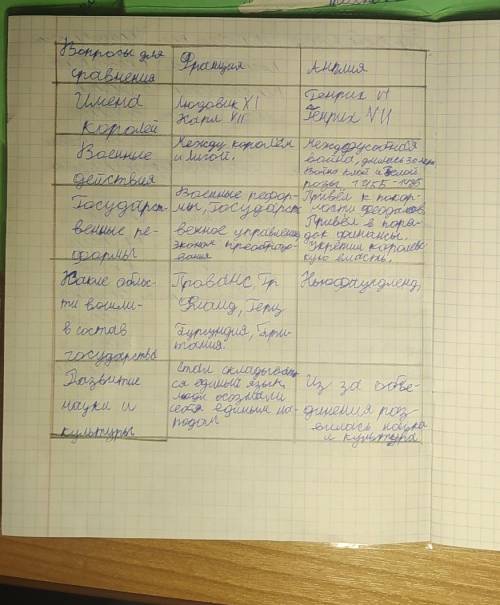 Вопросы для
сравнения
Франция
Англия
Имена
королей
Людовик XI
Карл VII
Генрих VI
Генрих VII
Военные
действия
Между королём
и Лигой.
Междоусобная
война, длилась 30 лет
Война Алой и Белой
розы, 1455-1485
Государст
венные ре-
формы
Военные рефор-
мы, государст
венное управление
эконом преобразо-
вания
Привёл к покор-
ности феодалов
Привёл в поря-
док финансы.
Укрепил королевс-
кую власть.
Какие облас-
ти вошли
в состав
государства
Прованс, Гр
Герц
Бургундия, Бри-
тания.
Ньюфаундленд,
Развитие
науки и
культуры
Стал складыват
ся единый язык,
люди осознали
себя единым на-
родом
Из за объе-
динения раз
вилась наука
и культура